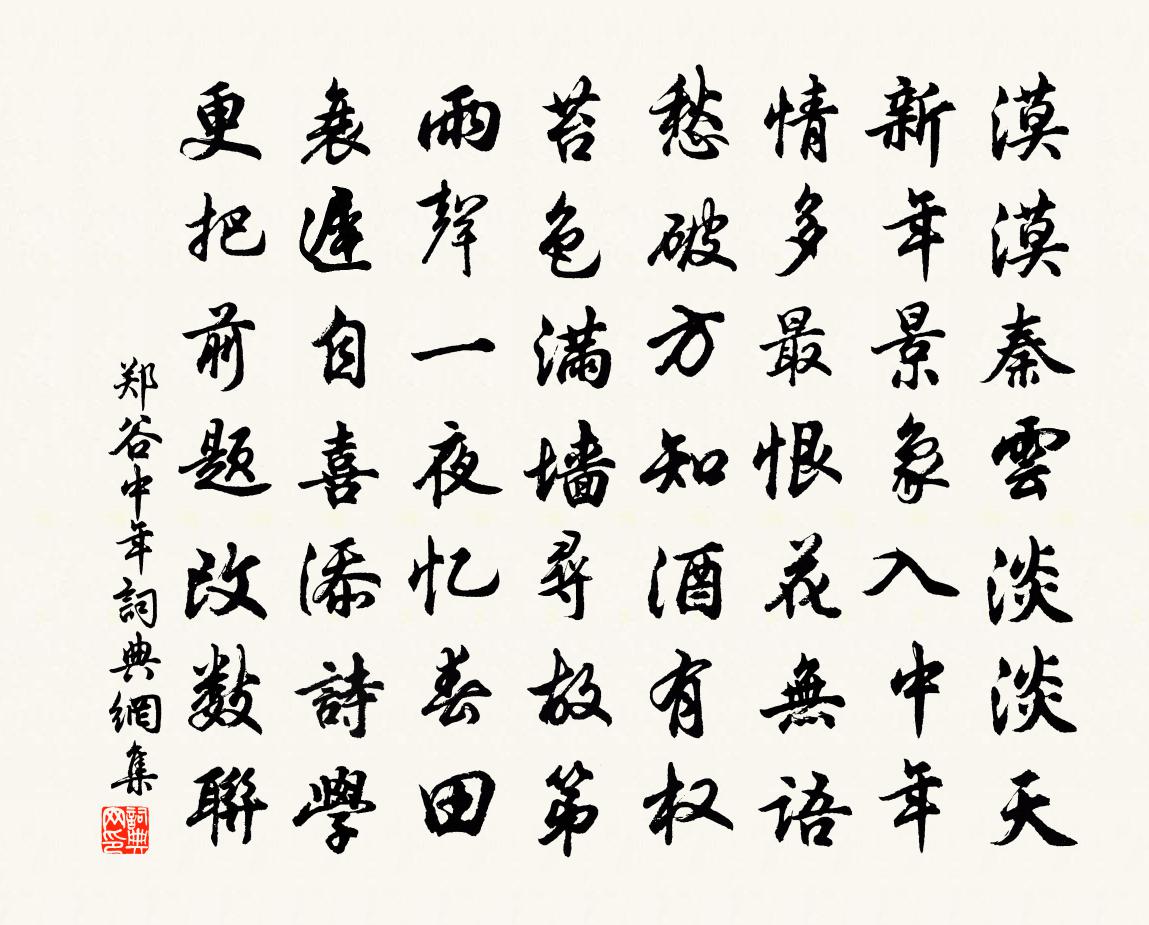 漠漠秦雲淡淡天
新年景象入中年
情多最恨花無語
愁破方知酒有权
苔色滿墻尋故第
雨聲一夜忆春田
衰遲自喜添詩學
更把前题改数聯
郑谷中年詞典網集
詞典网印